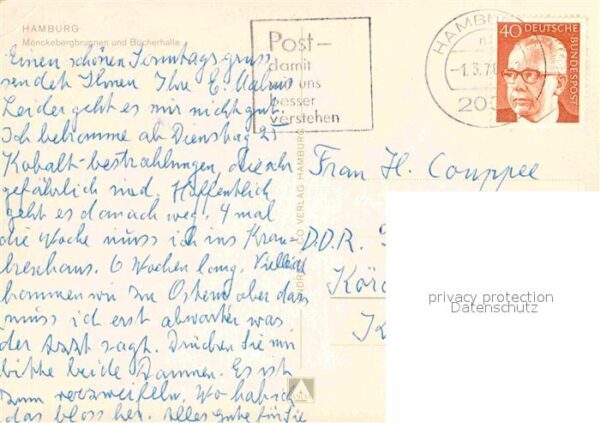 HAMBURG
Mönckebergbrunnen und Bücherhalle
Einen schönen Sonntagsgruss
sendet Ihnen Ihre E.
Leider geht es mir nicht gut.
Ich bekomme ab Dienstag 25
Kobalt-bestrahlungen, die sehr
gefährlich sind. Hoffentlich
geht es danach weg. 4 mal
die Woche muss ich ins Kran-
kenhaus. 6 Wochen lang. Vielleicht
kommen wir zu Ostern aber das
muss ich erst abwarten was
der Arzt sagt. Drücken Sie mir
bitte beide Daumen. Es ist
zum verzweifeln. Wo hab ich
das bloss her. Alles gute für Sie
Post-
damit
wir uns
besser
verstehen
HAMBU
-1.3.7
40
DEUTSCHE
BUNDESPOST
CO VERLAG HAMBURG
Frau H. Couppee
D.D.R.
privacy protection
Datenschutz